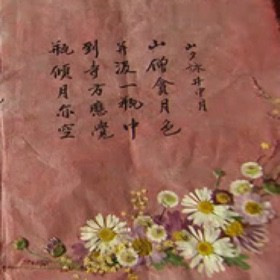 山夕咏井中月
山僧貪月色
并汲一瓶中
到寺方應覺
瓶傾月亦空